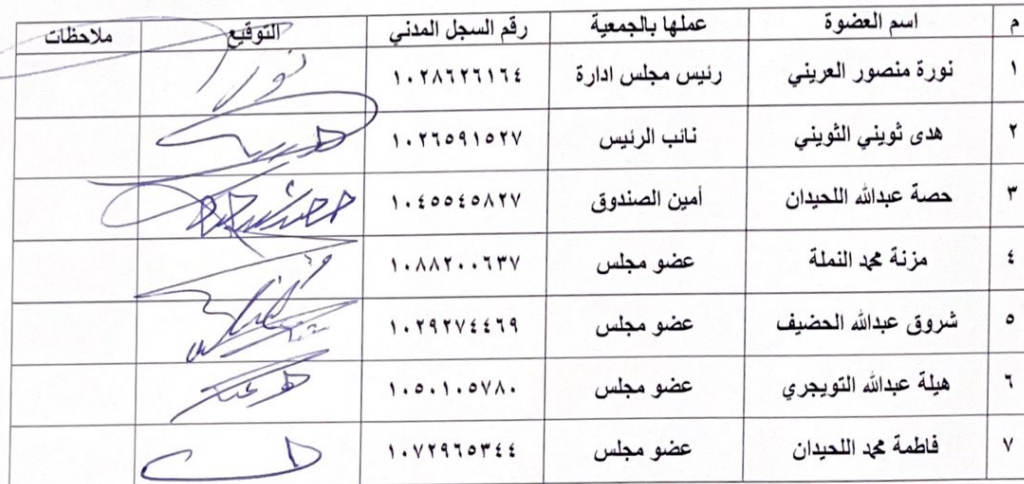 م اسم العضوة عملها بالجمعية رقم السجل المدني التوقيع ملاحظات
١ نورة منصور العريني رئيس مجلس ادارة ١٠٢٨٦٢٦١٦٤ نورا
٢ هدى ثويني الثويني نائب الرئيس ١٠٢٦٥٩١٥٢٧
٣ حصة عبدالله اللحيدان أمين الصندوق ١٠٤٥٥٤٥٨٢٧
٤ مزنة محمد النملة عضو مجلس ١٠٨٨٢٠٠٦٣٧
٥ شروق عبدالله الحضيف عضو مجلس ١٠٢٩٢٧٤٤٦٩
٦ هيلة عبدالله التويجري عضو مجلس ١٠٥٠١٠٥٧٨٠
٧ فاطمة محمد اللحيدان عضو مجلس ١٠٧٢٩٦٥٣٤٤